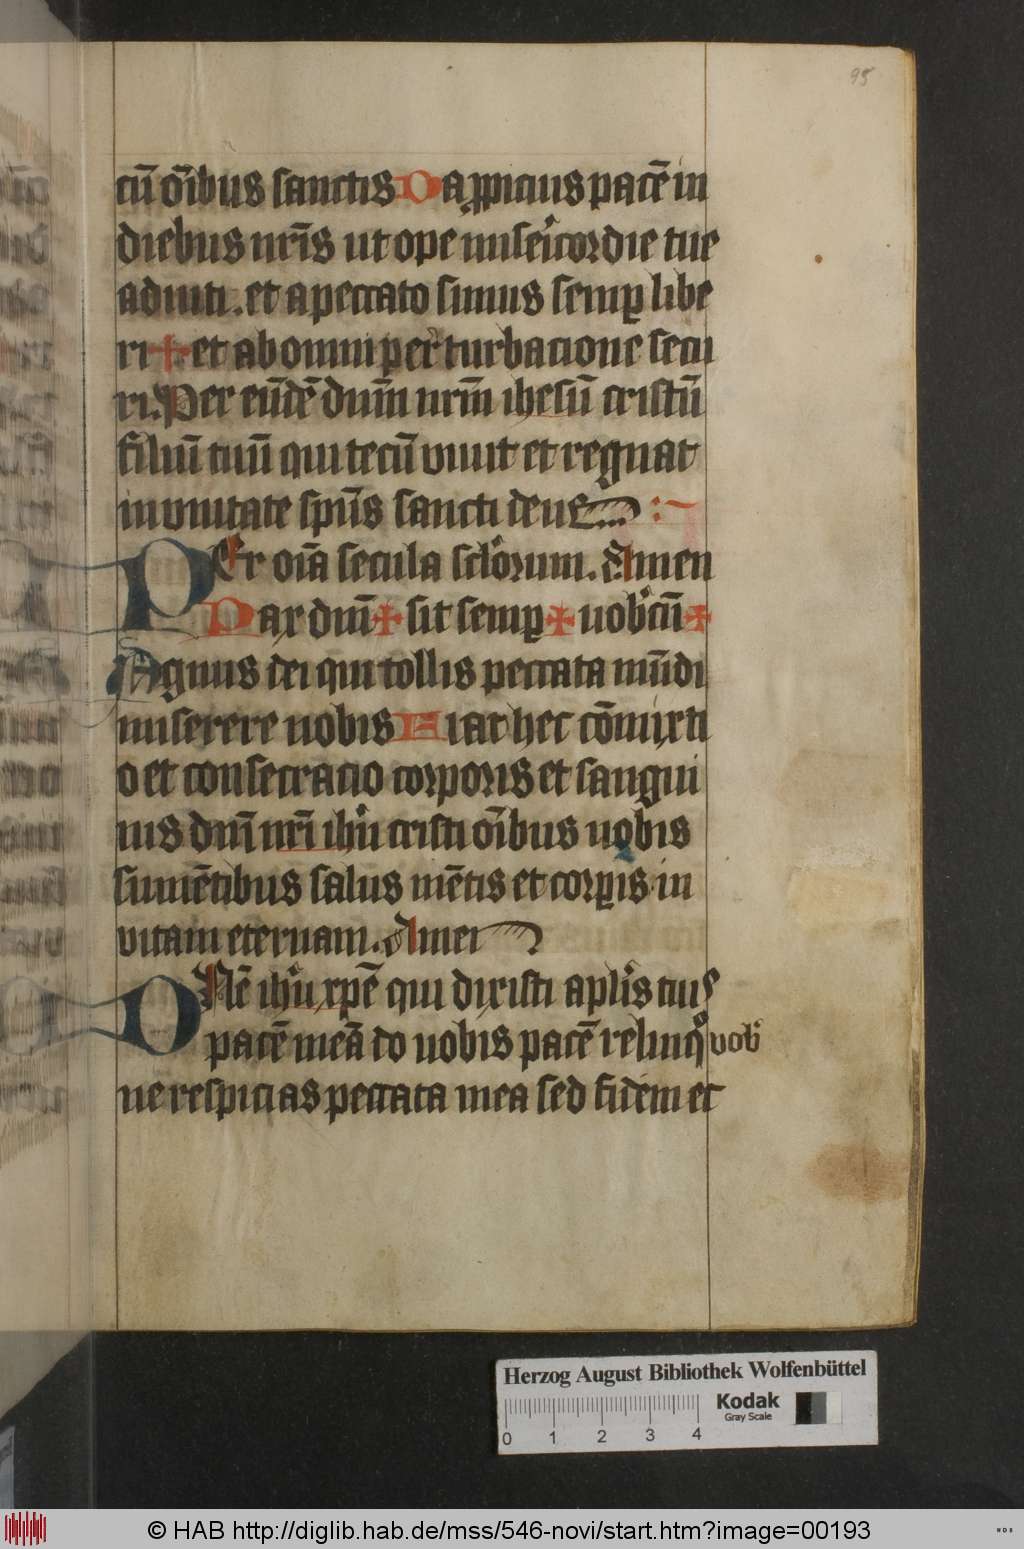 95
cū oībus sanctis Da ꝓpicius pacē in
diebus nrīs ut ope misericordie tue
adiuti. et a peccato simus semꝑ libe
ri ✝ et ab omni perturbacione secu
ri. Per eūdē dnm̄ nrm̄ ihesū cristū
filiū tuū qui tecū viuit et regnat
in vnitate spūs sancti deus
PEr oīa secula sclorum. Amen
Pax dnī ✠ sit semꝑ ✠ uobcū ✠
Agnus dei qui tollis peccata mūdi
miserere nobis Fiat hec cōmixti
o et consecracio corporis et sangui
nis dnī nrī ihū cristi oībus nobis
sumētibus salus mētis et corꝑis in
vitam eternam. Amen
DNē ihū xpē qui dixisti aplis tuis
pacē meā do uobis pacē relinqͦ vob
ne respicias peccata mea sed fidem et
Herzog August Bibliothek Wolfenbüttel
Kodak
Gray Scale
0 1 2 3 4
© HAB http://diglib.hab.de/mss/546-novi/start.htm?image=00193